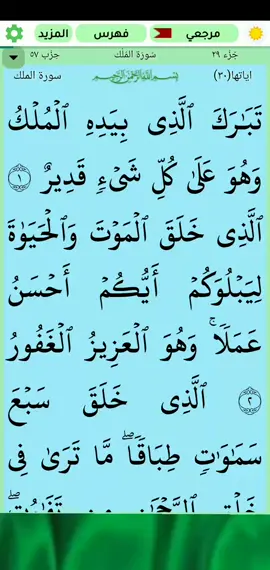 مرجعي فهرس المزيد
جُزء ٢٩ سُورَة المُلك حِزب ٥٧
اياتها(٣٠) بِسْمِ اللَّهِ الرَّحْمَنِ الرَّحِيمِ سورة الملك
تَبَـٰرَكَ ٱلَّذِى بِيَدِهِ ٱلْمُلْكُ
وَهُوَ عَلَىٰ كُلِّ شَىْءٍ قَدِيرٌ ١
ٱلَّذِى خَلَقَ ٱلْمَوْتَ وَٱلْحَيَوٰةَ
لِيَبْلُوَكُمْ أَيُّكُمْ أَحْسَنُ
عَمَلًا ۚ وَهُوَ ٱلْعَزِيزُ ٱلْغَفُورُ
٢ ٱلَّذِى خَلَقَ سَبْعَ
سَمَـٰوَٰتٍ طِبَاقًا ۖ مَّا تَرَىٰ فِى
خَلْقِ ٱلرَّحْمَـٰنِ مِن تَفَـٰوُتٍ ۖ